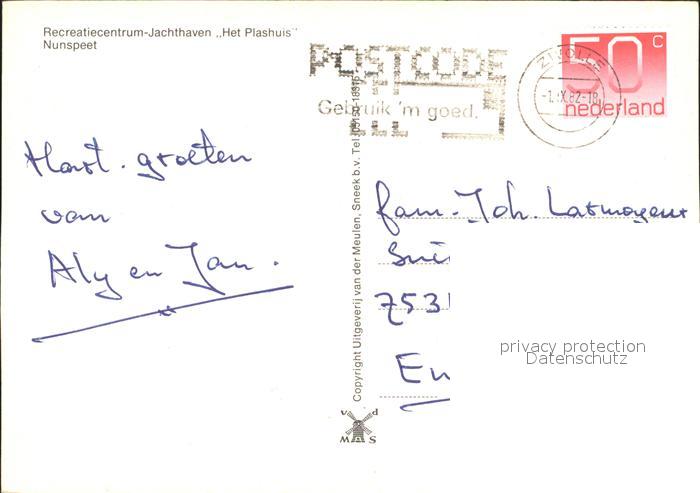 Recreatiecentrum-Jachthaven „Het Plashuis”
Nunspeet
POSTCODE
Gebruik 'm goed.
ZWOLLE
-1.IX.82-18
50 c
nederland
Hart. groeten
van
Aly en Jan.
Copyright Uitgeverij van der Meulen, Sneek b.v. Tel.
fam. Joh.
7531
En
privacy protection
Datenschutz
v d
MAS